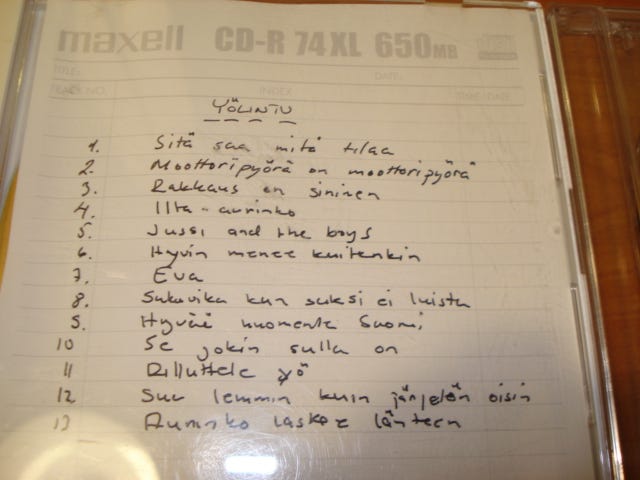 maxell CD-R 74XL 650MB
TITLE: DATE:
TRACK NO. INDEX TIME/DATE
YÖLINTU
1. Sitä saa mitä tilaa
2. Moottoripyörä on moottoripyörä
3. Rakkaus on sininen
4. Ilta-aurinko
5. Jussi and the boys
6. Hyvin menee kuitenkin
7. Eva
8. Sukuvika kun suksi ei luista
9. Hyvää huomenta Suomi
10 Se jokin sulla on
11 Rilluttele yö
12 Suu lemmin kuin järjetön oisin
13 Aurinko laskee länteen